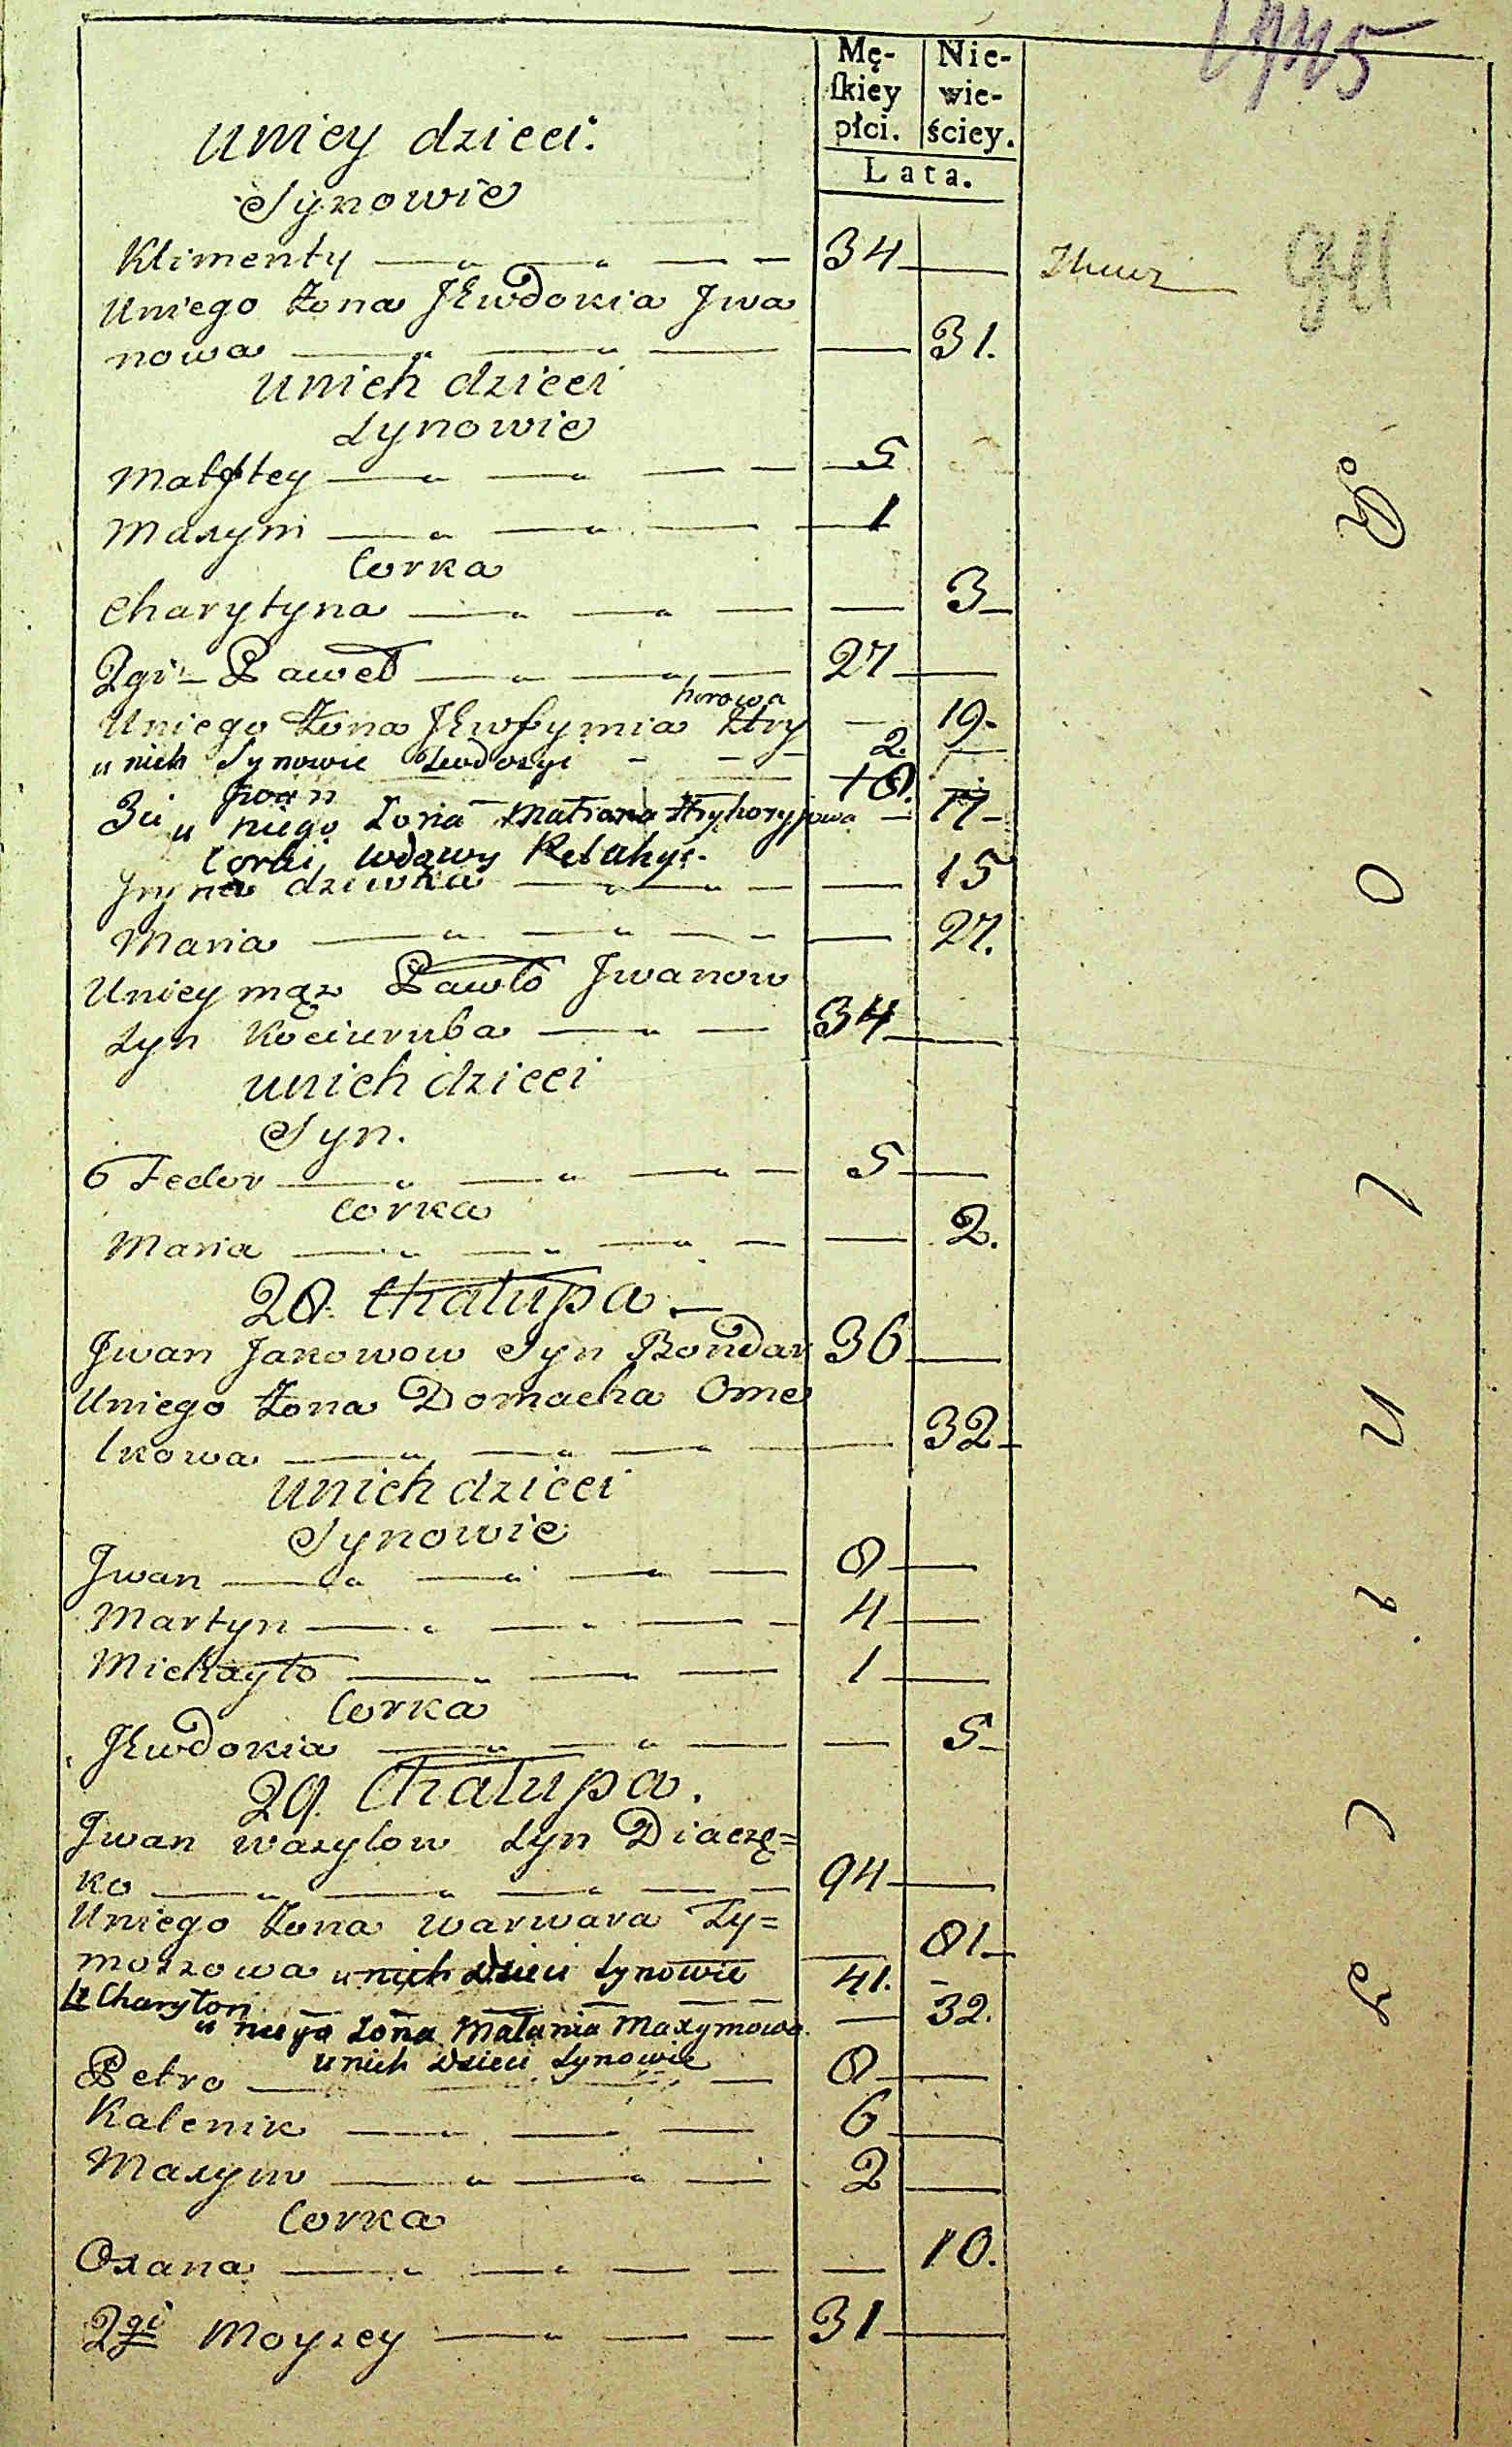 Mę-
ſkiey
płci.
Nie-
wie-
ściey.
Lata.
Uniey dzieci.
Synowie
Klimenty 34
Uniego żona Jewdokia Jwa
nowa 31.
Unich dzieci
Synowie
Matftey 5
Maxym 1
Corka
Charytyna 3
2gi Paweł 27
horowa
Uniego żona Jewfymia Hry 19
u nich Synowie Teodozyi 2.
Jwan
3ci 18.
u niego żona Matrona Hryhoryjowa 17
Corki wdowy
Jryna dziewka 15
Maria 27.
Uniey mąz Pawło Jwanow
Syn Kociuruba 34
Unich dzieci
Syn.
6 Fedor 5
Corka
Maria 2.
28. Chałupa
Jwan Jakowow Syn Bondar 36
Uniego żona Domacha Ome
lkowa 32
Unich dzieci
Synowie
Jwan 8
Martyn 4
Michayło 1
Corka
Jewdokia 5
29. Chałupa.
Jwan Wasylow Syn Diaczę=
ko 94
Uniego żona Warwara Ty=
moszowa u nich dzieci Synowie 81
Charyton 41.
u niego żona Małania Maxymowa 32.
u nich dzieci Synowie
Petro 8
Kalenik 6
Maxym 2
Corka
Oxana 10.
2gi Moyzey 31